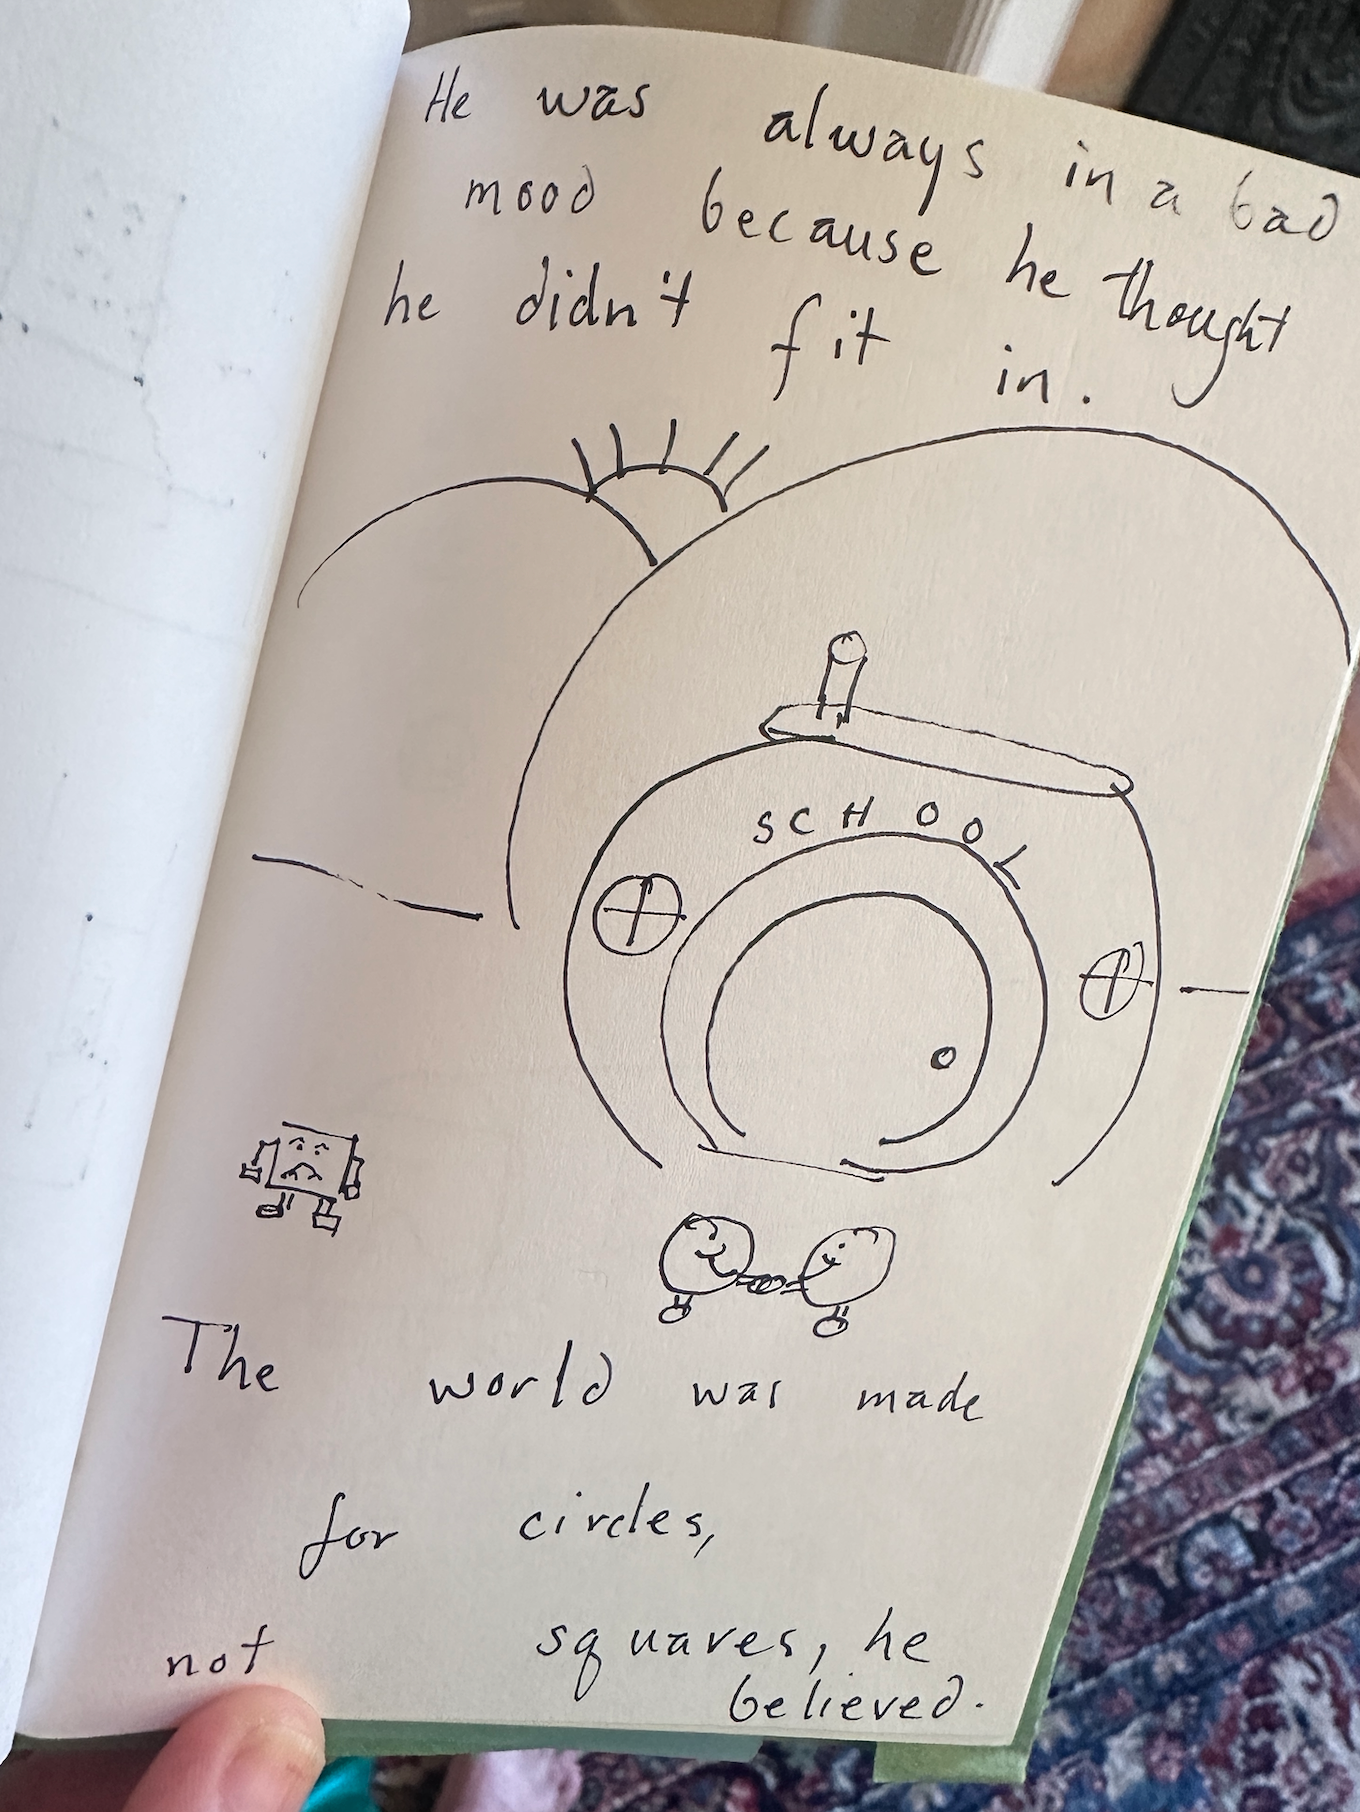 He was always in a bad
mood because he thought
he didn't fit in.
SCHOOL
The world was made
for circles,
not squares, he
believed.